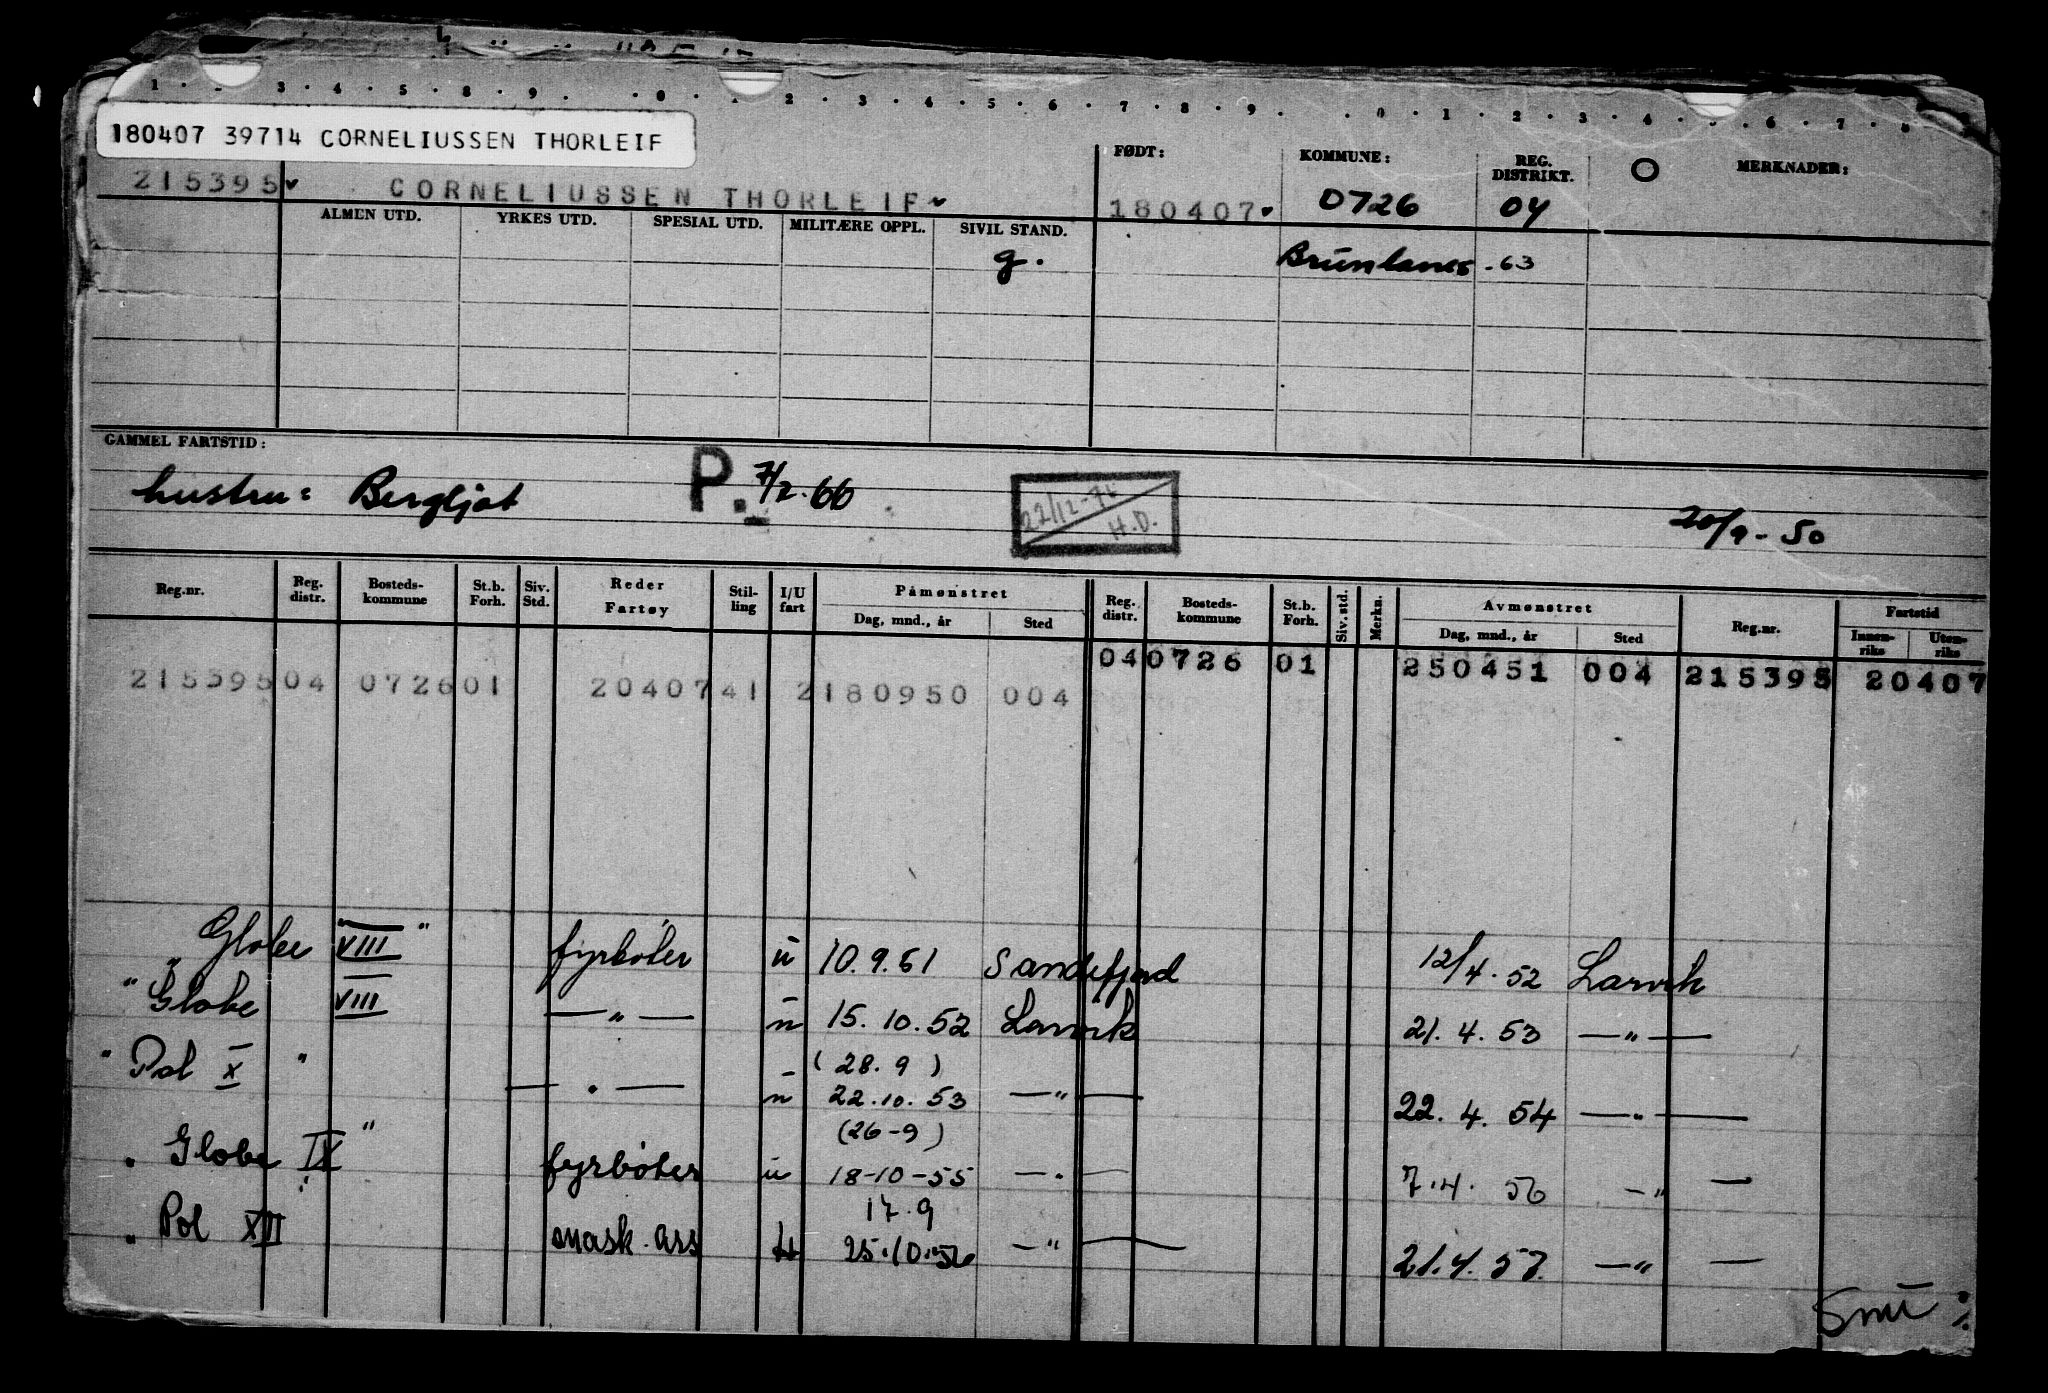 1 · · 3 · 4 · 5 · 8 · 9 · · 0 · · 2 · 3 · 4 · 5 · 6 · 7 · 8 · 9 · · 0 · 1 · 2 · 3 · 4 · 5 · 6 · 7 · 8
180407 39714 CORNELIUSSEN THORLEIF
FØDT: KOMMUNE: REG. DISTRIKT. O MERKNADER:
215395 CORNELIUSSEN THORLEIF 180407 0726 04
ALMEN UTD. YRKES UTD. SPESIAL UTD. MILITÆRE OPPL. SIVIL STAND.
g. Brunlanes - 63
GAMMEL FARTSTID:
hustru: Bergljot P. 7/2.66 22/12-76 H.D. 20/9-50
Reg.nr. Reg. distr. Bosteds-kommune St.b. Forh. Siv. Std. Reder Fartøy Stil-ling I/U fart Påmønstret Dag, mnd., år Sted Reg. distr. Bosteds-kommune St.b. Forh. Siv. std. Merkn. Avmønstret Dag, mnd., år Sted Reg.nr. Fartstid Innen-riks Uten-riks
215395 04 0726 01 20407 41 2 180950 004 04 0726 01 250451 004 215395 20407
" Globe VIII " fyrbøter u 10.9.51 Sandefjord 12/4.52 Larvik
" Globe VIII — " — u 15.10.52 Larvik 21.4.53 — " —
(28.9)
" Pol X " — " — u 22.10.53 — " — 22.4.54 — " —
(26-9)
" Globe IX " fyrbøter u 18-10-55 — " — 7.4.56 — " —
17.9
" Pol XII mask. ass U 25.10.56 — " — 21.4.57. — " —
Snu %